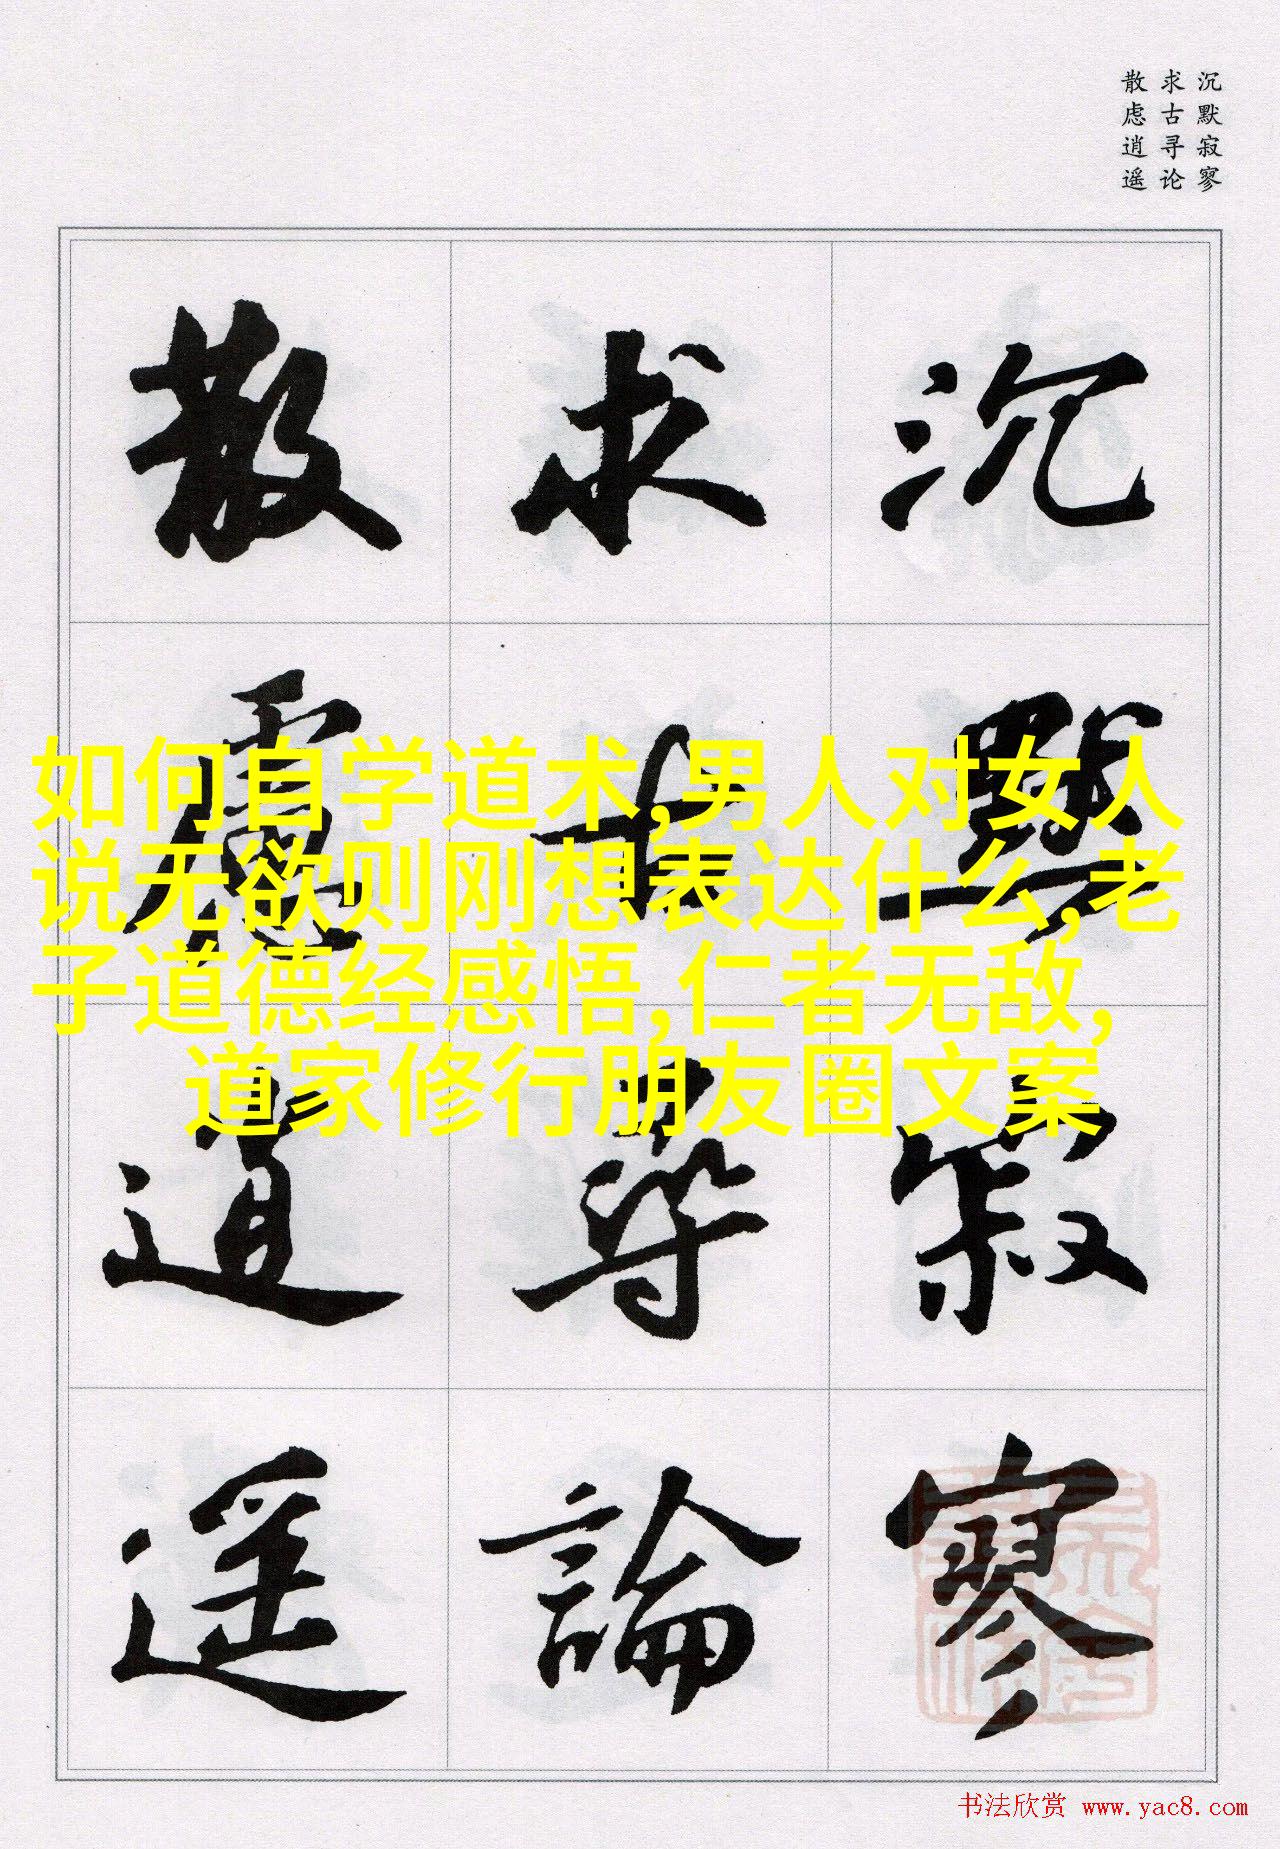 沉默寂寥
求古寻论
散虑逍遥
沉默寂寥
求古尋論
散慮逍遥
如何自学道术,男人对女人
说无欲则刚想表达什么,老
子道德经感悟,仁者无敌,
道家修行朋友圈文案
书法欣赏 www.yac8.com